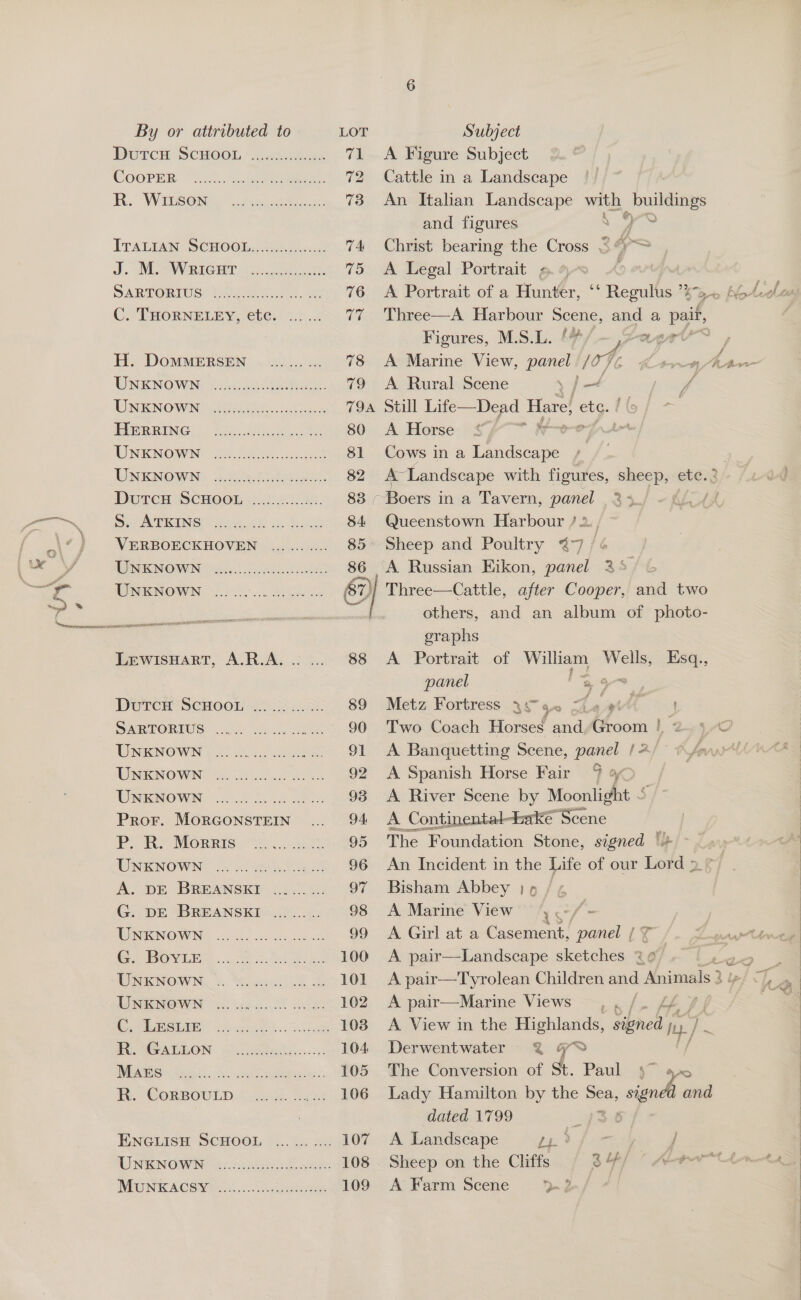 6
By or attributed to LOT Subject
DUTCH SCHOOL ............... 71 A Figure Subject
COOPER ............... 72 Cattle in a Landscape
R. WILSON ............... 73 An Italian Landscape with buildings
and figures
ITALIAN SCHOOL............... 74 Christ bearing the Cross
J. M. WRIGHT ............... 75 A Legal Portrait
SARTORIUS ............... 76 A Portrait of a Hunter, “ Regulus ”
C. THORNELEY, etc. ...... 77 Three—A Harbour Scene, and a pair,
Figures, M.S.L.
H. DOMMERSEN ......... 78 A Marine View, panel
UNKNOWN ............... 79 A Rural Scene
UNKNOWN ............... 79A Still Life—Dead Hare, etc.
HERRING ............... 80 A Horse
UNKNOWN ............... 81 Cows in a Landscape
UNKNOWN ............... 82 A Landscape with figures, sheep, etc.
DUTCH SCHOOL ............ 83 Boers in a Tavern, panel
S. ATKINS ............... 84 Queenstown Harbour
VERBOECKHOVEN ......... 85 Sheep and Poultry
UNKNOWN ............... 86 A Russian Eikon, panel
UNKNOWN ............... 87 Three—Cattle, after Cooper, and two
others, and an album of photo-
graphs
LEWISHART, A.R.A. ..... 88 A Portrait of William Wells, Esq.,
panel
DUTCH SCHOOL ............ 89 Metz Fortress
SARTORIUS ............... 90 Two Coach Horses and Groom
UNKNOWN ............... 91 A Banquetting Scene, panel
UNKNOWN ............... 92 A Spanish Horse Fair
UNKNOWN ............... 93 A River Scene by Moonlight
PROF. MORGONSTEIN ... 94 A Continental Lake Scene
P. R. MORRIS ............ 95 The Foundation Stone, signed
UNKNOWN ............... 96 An Incident in the Life of our Lord
A. DE BREANSKI ......... 97 Bisham Abbey
G. DE BREANSKI ......... 98 A Marine View
UNKNOWN ............... 99 A Girl at a Casement, panel
G. BOYLE ............... 100 A pair—Landscape sketches
UNKNOWN ............... 101 A pair—Tyrolean Children and Animals
UNKNOWN ............... 102 A pair—Marine Views
C. LESLIE ............... 103 A View in the Highlands, signed
R. GALLON ............... 104 Derwentwater
MAES ............... 105 The Conversion of St. Paul
R. CORBOULD ............ 106 Lady Hamilton by the Sea, signed and
dated 1799
ENGLISH SCHOOL ......... 107 A Landscape
UNKNOWN ............... 108 Sheep on the Cliffs
MUNKACSY ............... 109 A Farm Scene